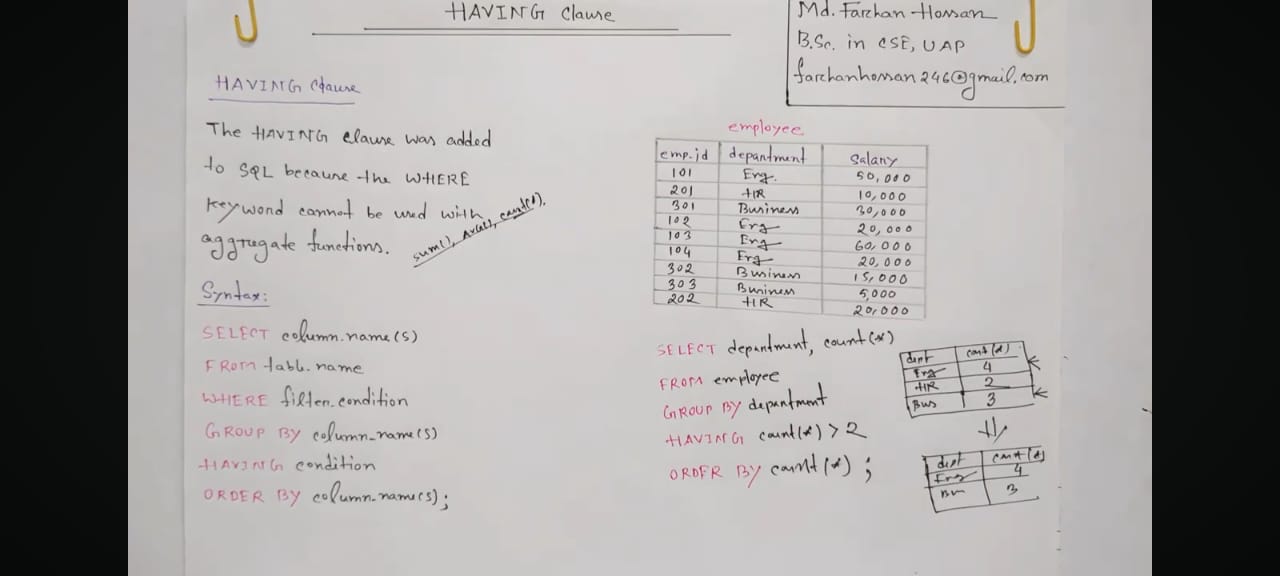 HAVING Clause
Md. Farhan Hossan
B.Sc. in CSE, UAP
farhanhossan246@gmail.com
HAVING Clause
The HAVING clause was added
to SQL because the WHERE
keyword cannot be used with
aggregate functions. sum(), Avg(), count(*),
Syntax:
SELECT column_name(s)
FROM table_name
WHERE filter_condition
GROUP BY column_name(s)
HAVING condition
ORDER BY column_name(s);
employee
emp_id department Salary
101 Eng. 50,000
201 HR 10,000
301 Business 30,000
102 Eng 20,000
103 Eng 60,000
104 Eng 20,000
302 Business 15,000
303 Business 5,000
202 HR 20,000
SELECT department, count(*)
FROM employee
GROUP BY department
HAVING count(*) > 2
ORDER BY count(*) ;
dept count(*)
Eng 4
HR 2
Bus 3
dept count(*)
Eng 4
Bus 3